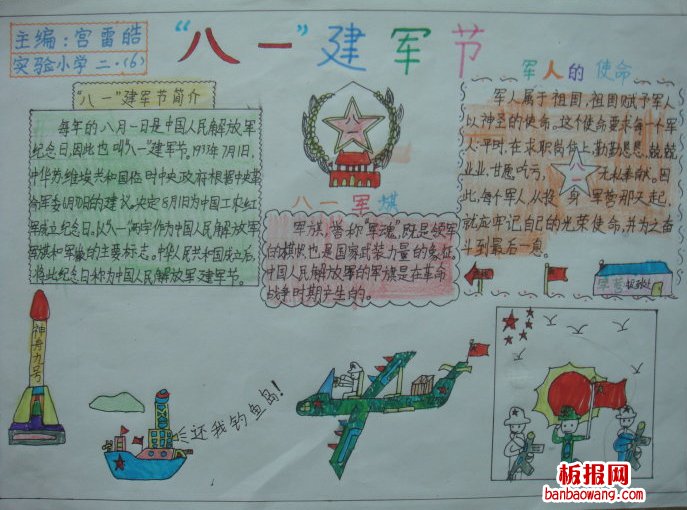 主编:宫雷皓
实验小学二·(6)
“八一”建军节
“八一”建军节简介
每年的八月一日是中国人民解放军
纪念日,因此也叫“八一”建军节。1933年7月1日,
中华苏维埃共和国临时中央政府根据中央革
命军委6月30日的建议,决定8月1日为中国工农红
军成立纪念日。以“八一”两字作为中国人民解放军
军旗和军徽的主要标志。中华人民共和国成立后,
将此纪念日称为中国人民解放军建军节。
八一军旗
军旗,誉称“军魂”,既是领军
的旗帜,也是国家武装力量的象征。
中国人民解放军的军旗是在革命
战争时期产生的。
军人的使命
军人属于祖国,祖国赋予军人
以神圣的使命。这个使命要求每个军
人:平时,在求职尚位上勤勤恳恳,兢兢
业业,甘愿吃亏,无私奉献。因
此,每个军人从投身军营那天起,
就应牢记自己的光荣使命,并为之奋
斗到最后一息。
八一
神舟九号
还我钓鱼岛!
板报网
banbaowang.com